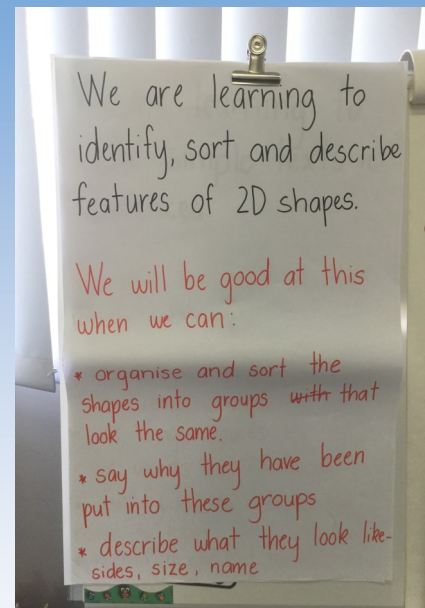 We are learning to
identify, sort and describe
features of 2D shapes.
We will be good at this
when we can:
* organise and sort the
shapes into groups with that
look the same.
* say why they have been
put into these groups
* describe what they look like-
sides, size, name